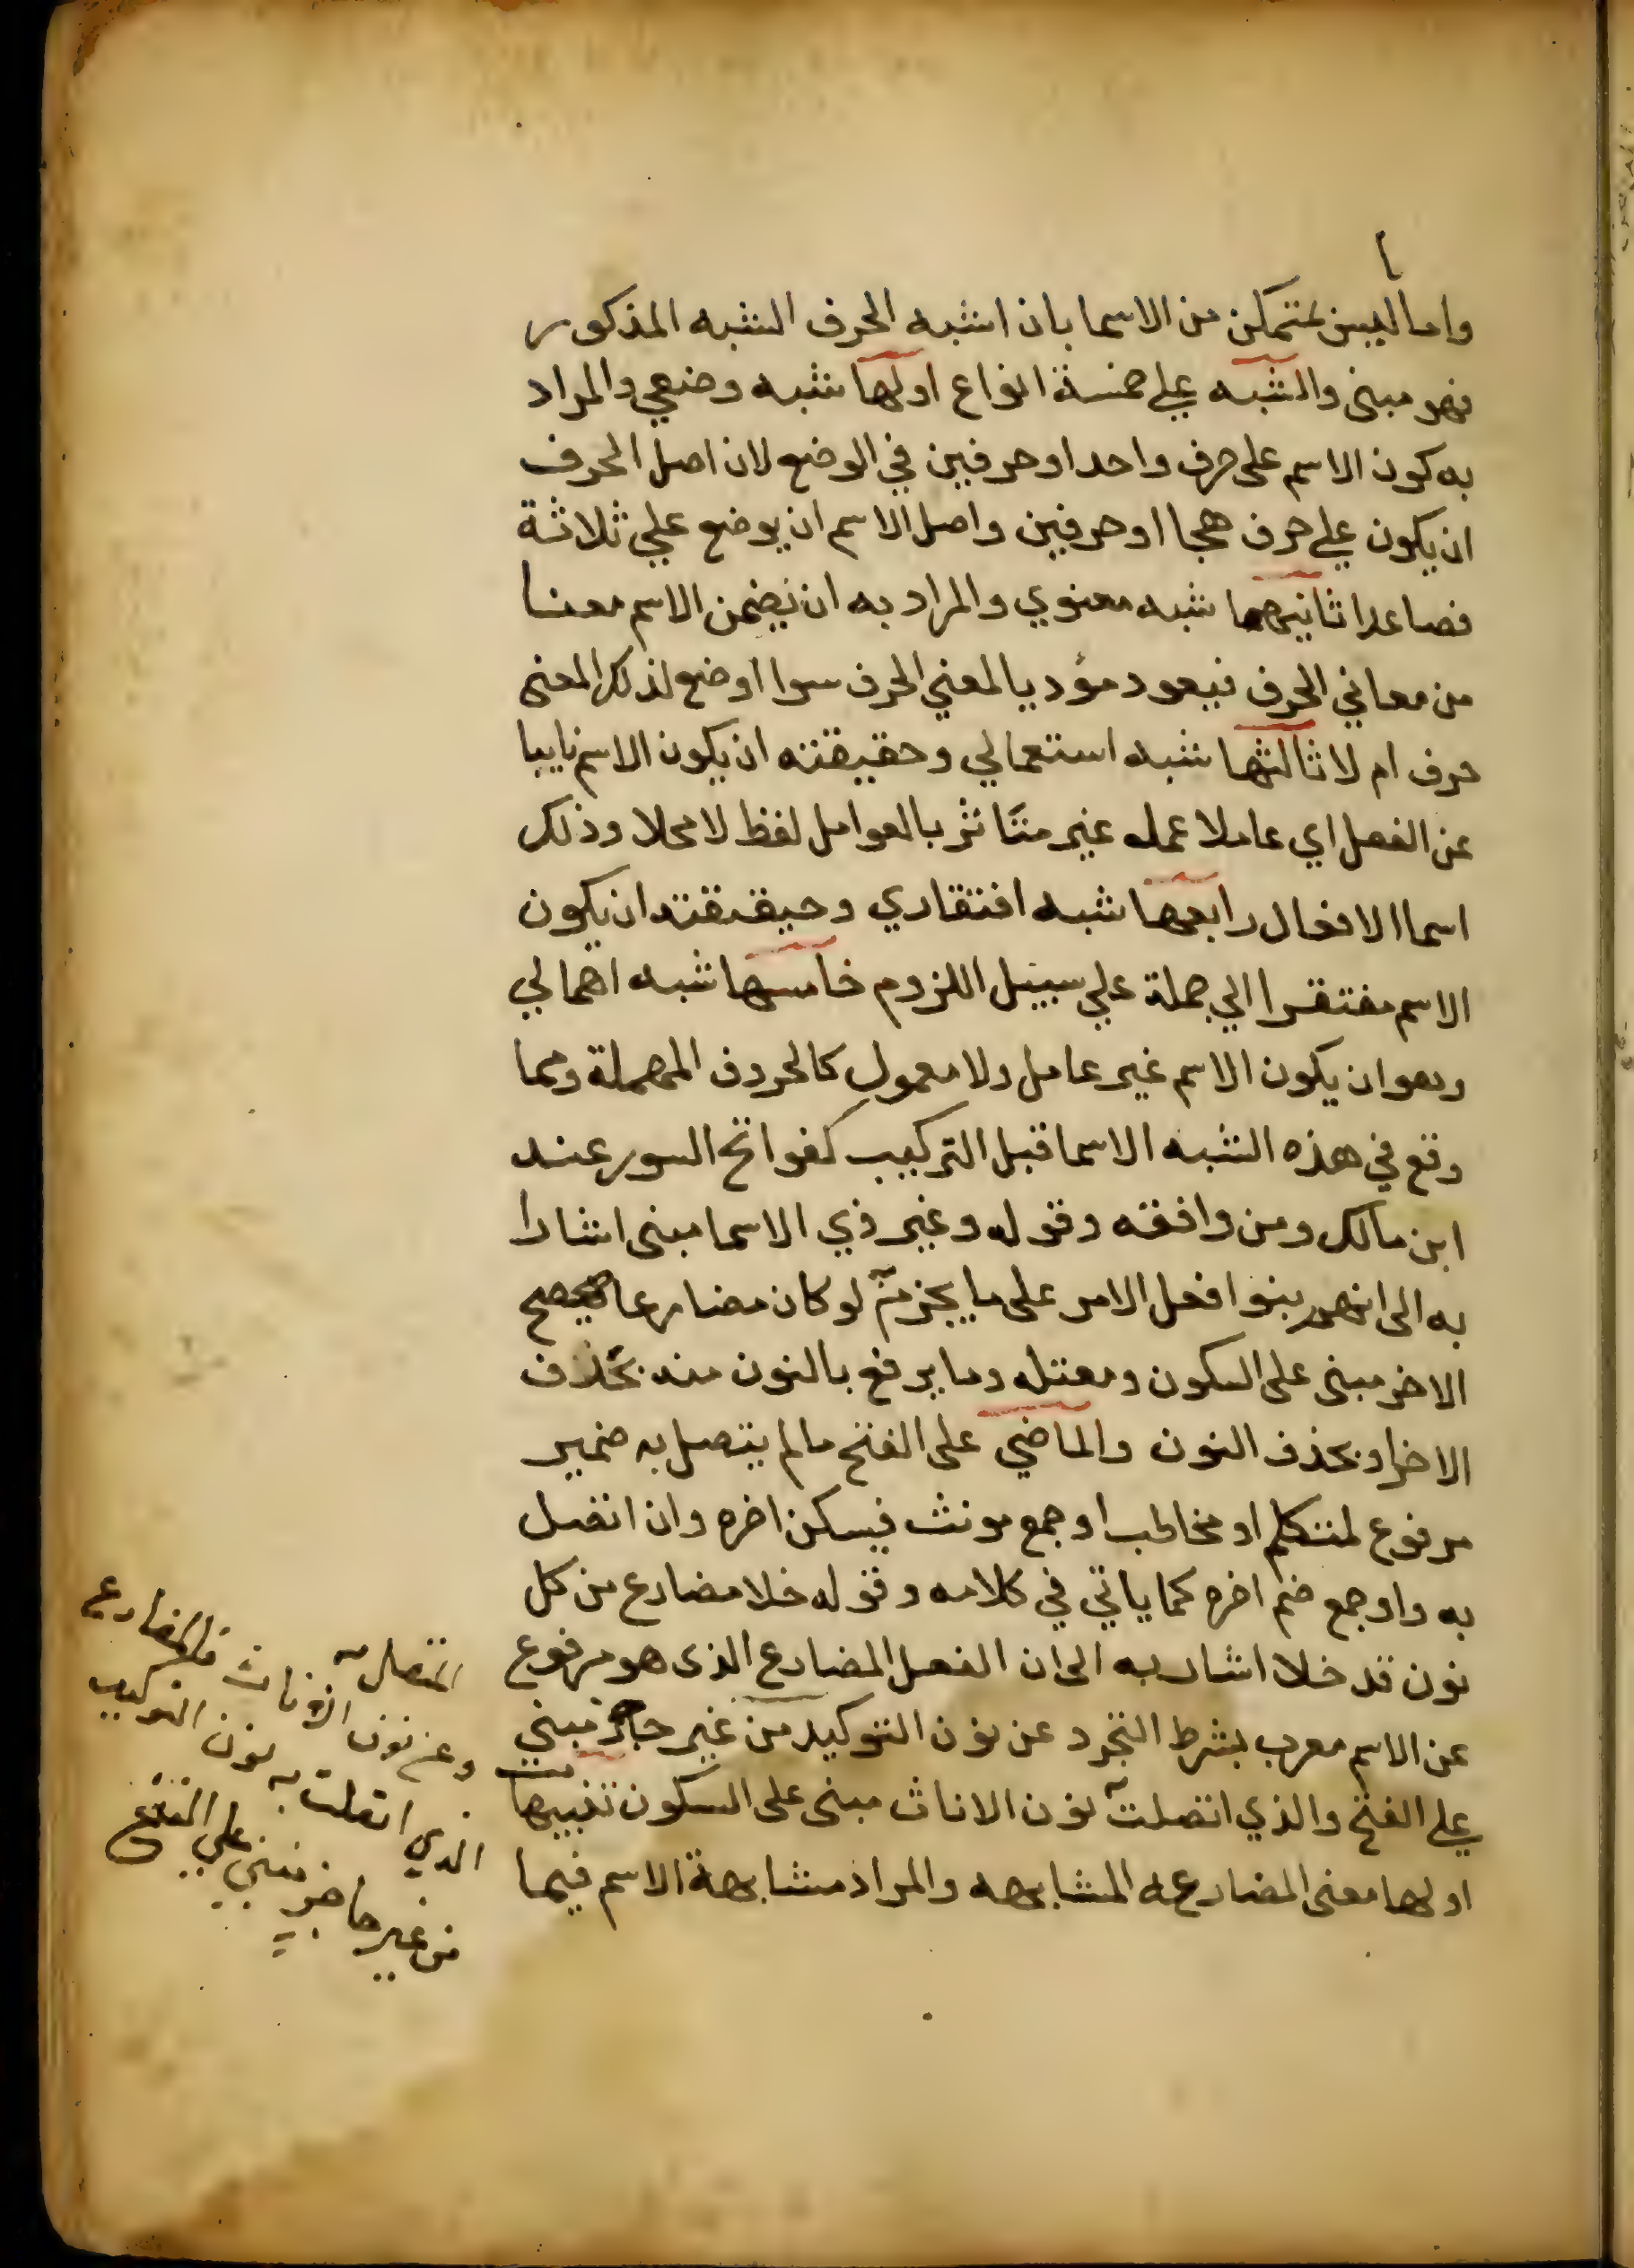 واما ما ليس بمتمكن من الاسما بان اشبه الحرف الشبه المذكور
فهو مبنى والشبه على خمسة انواع اولها شبه وضعي والمراد
به كون الاسم على حرف واحد او حرفين في الوضع لان اصل الحرف
ان يكون على حرف هجا او حرفين واصل الاسم ان يوضع علي ثلاثة
فصاعدا ثانيها شبه معنوي والمراد به ان يضمن الاسم معنا
من معاني الحرف فيعود مؤديا لمعني الحرف سوا اوضع لذلك المعنى
حرف ام لا ثالثها شبه استعمالي وحقيقته ان يكون الاسم نايبا
عن الفعل اي عاملا عمله غير متاثر بالعوامل لفظ لا محلا وذلك
اسما الافعال رابعها شبه افتقاري وحيقيقته ان يكون
الاسم مفتقرا الي جملة علي سبيل اللزوم خامسها شبه اهمالي
وهو ان يكون الاسم غير عامل ولا معمول كالحروف المهملة ومما
وقع في هذه الشبه الاسما قبل التركيب كفواتح السور عند
ابن مالك ومن وافقه وقوله وغير ذي الاسما مبنى اشارا
به الى انهم بنوا فعل الامر على ما يجزم به لو كان مضارعا فصحيح
الاخر مبنى على السكون ومعتله وما يرفع بالنون منه بحذف
الاخر او بحذف النون والماضي على الفتح ما لم يتصل به ضمير
مرفوع لمتكلم او مخاطب او جمع مونث فيسكن اخره وان اتصل
به واو جمع ضم اخره كما ياتي في كلامه وقوله خلا مضارع من كل
نون قد خلا اشار به الى ان الفعل المضارع الذى هو مرفوع
عن الاسم معرب بشرط التجرد عن نون التوكيد من غير حاجز مبني
على الفتح والذي اتصلت به نون الاناث مبنى على السكون تنبيهات
اولها معنى المضارعه المشابهه والمراد مشابهة الاسم فيما
المتصل به
وعن نون الاناث فالمضارع
الذي اتصلت به نون التوكيد
من غير حاجز مبني علي الفتح